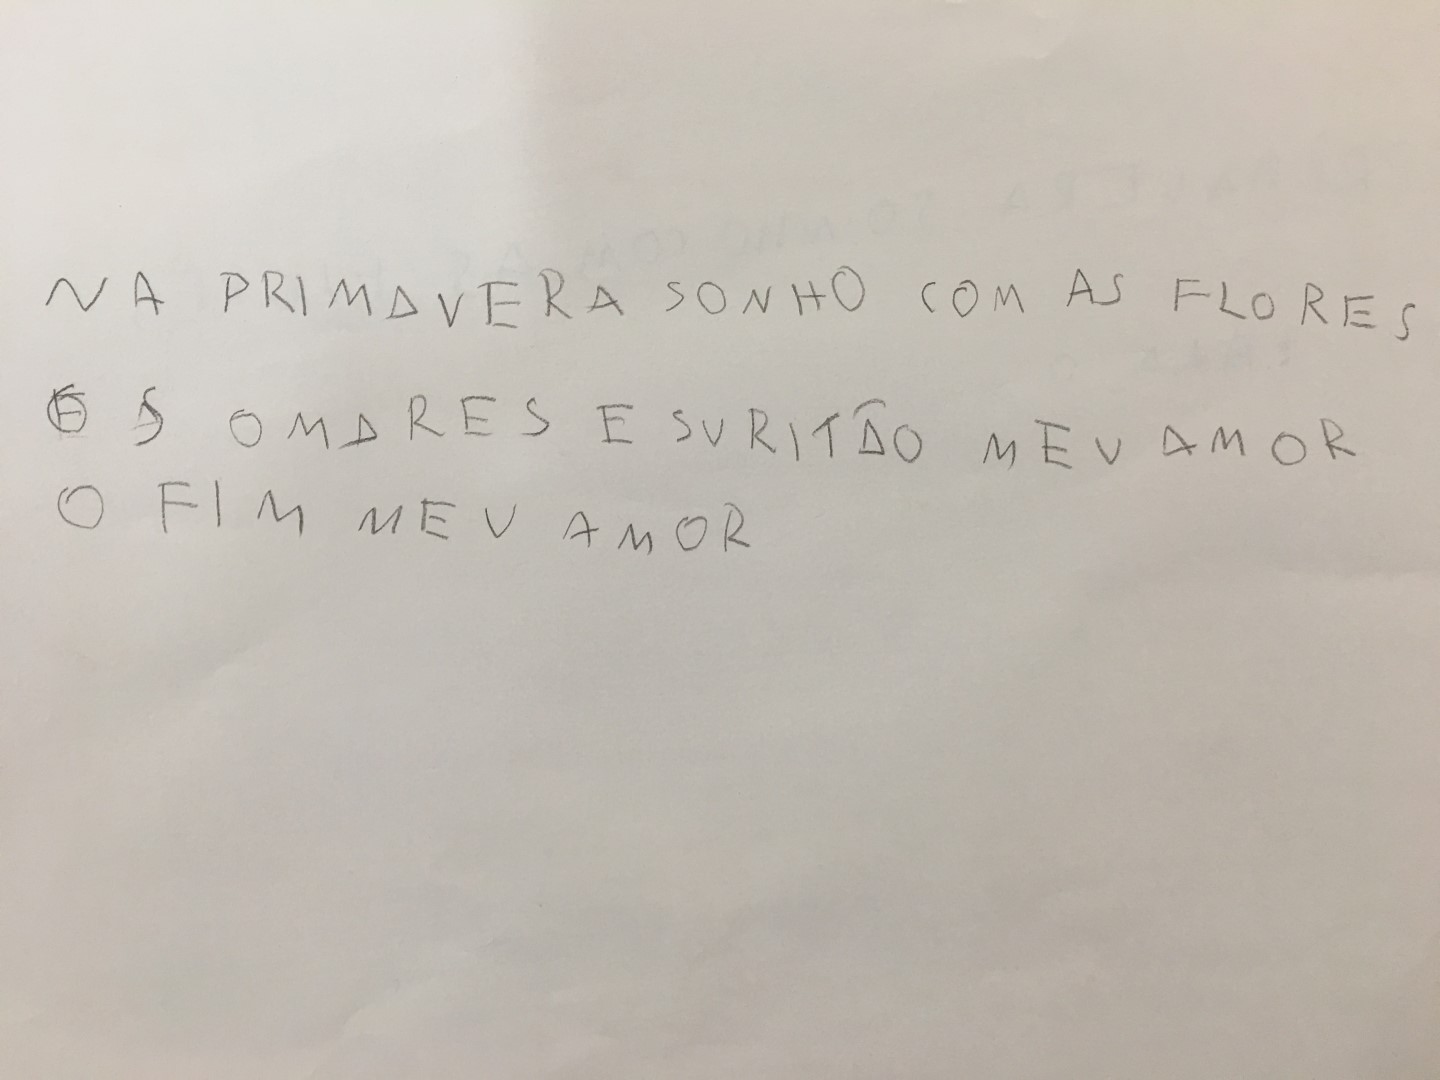 NA PRIMAVERA SONHO COM AS FLORES
OS OMARES E SURITÃO MEU AMOR
O FIM MEU AMOR